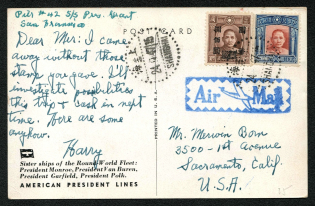 Pier #42 S/S Pres. Grant
San Francisco
POST CARD
Dear Mer: I came
away without those
stamps you gave. I'll
investigate possibilities
this trip & back in next
time. Here are some
anyhow.
Harry
Sister ships of the Round-World Fleet:
President Monroe, President Van Buren,
President Garfield, President Polk.
AMERICAN PRESIDENT LINES
PRINTED IN U.S.A.
Air Mail
Mr. Merwin Born
3500 - 1st Avenue
Sacramento, Calif.
U.S.A.